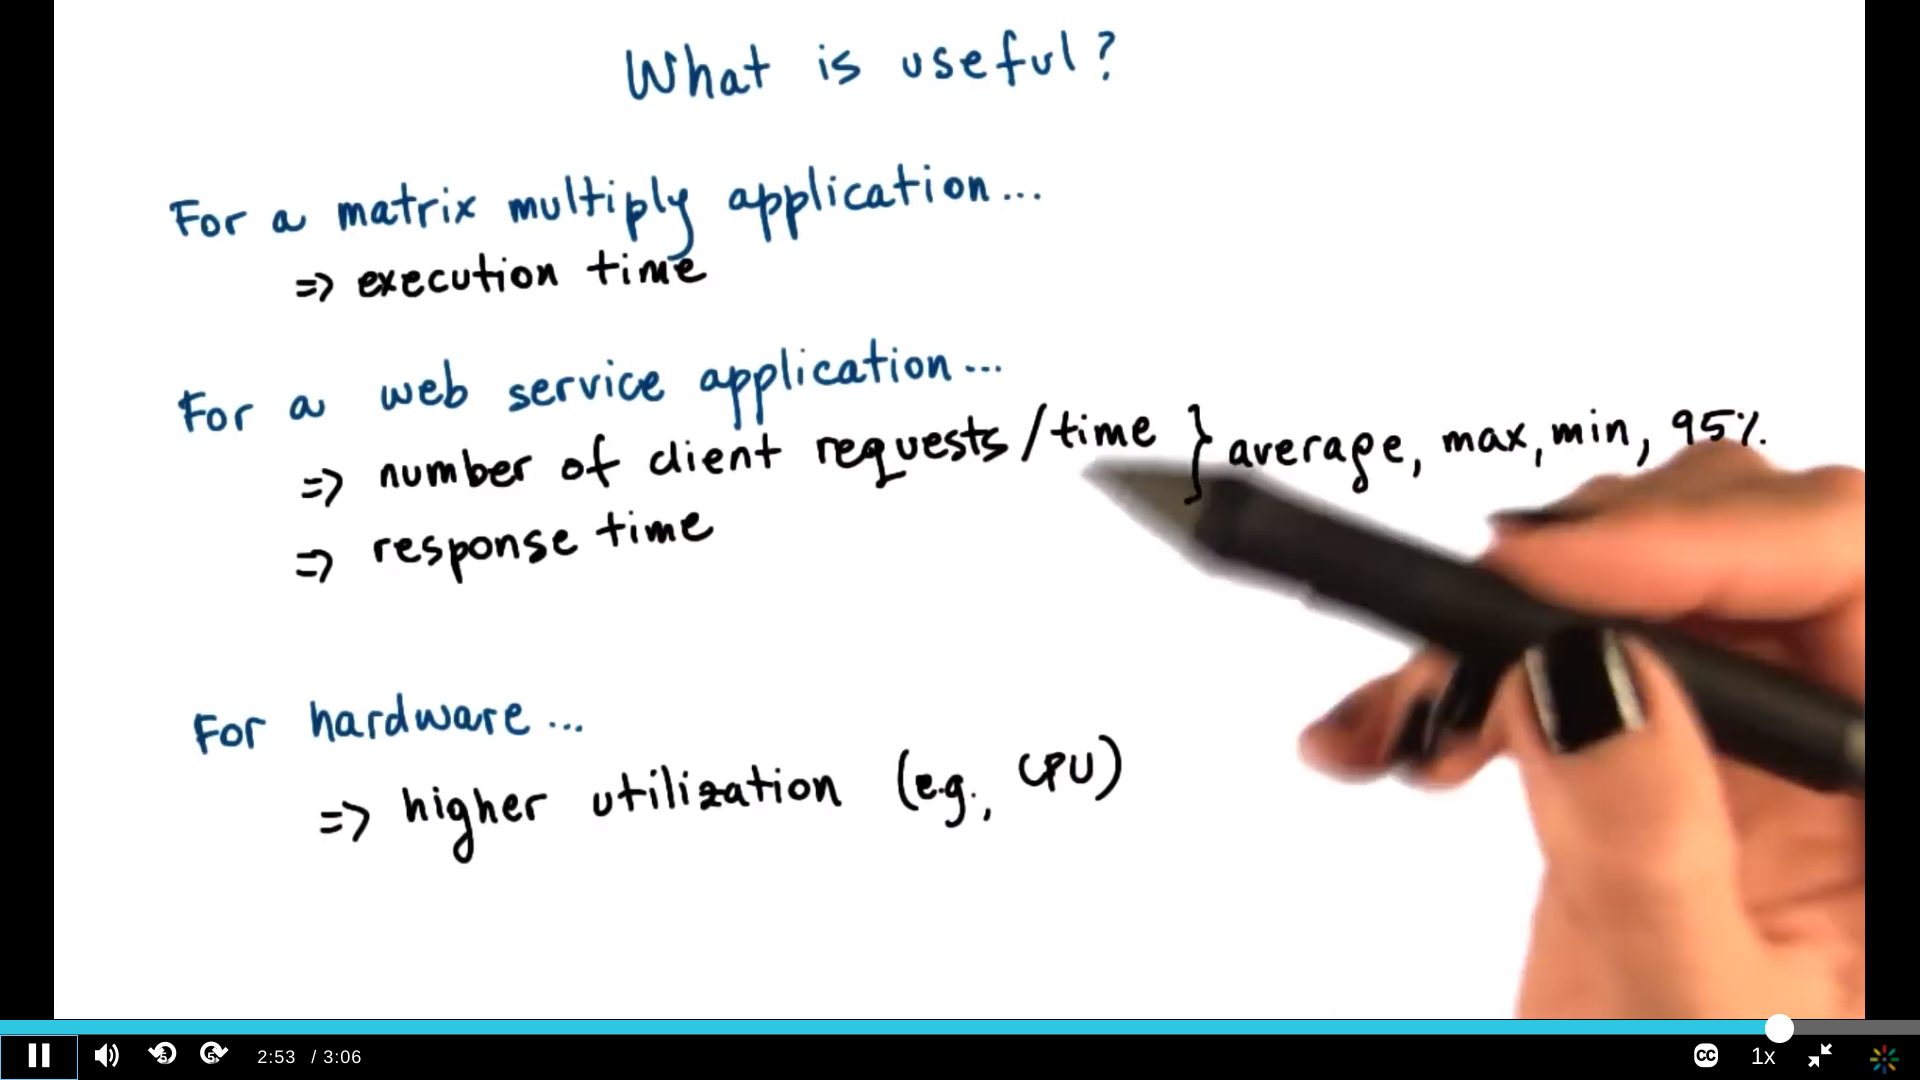 What is useful?
For a matrix multiply application...
=> execution time
For a web service application...
=> number of client requests/time } average, max, min, 95%
=> response time
For hardware...
=> higher utilization (e.g., CPU)
5 5 2:53 / 3:06 CC 1x